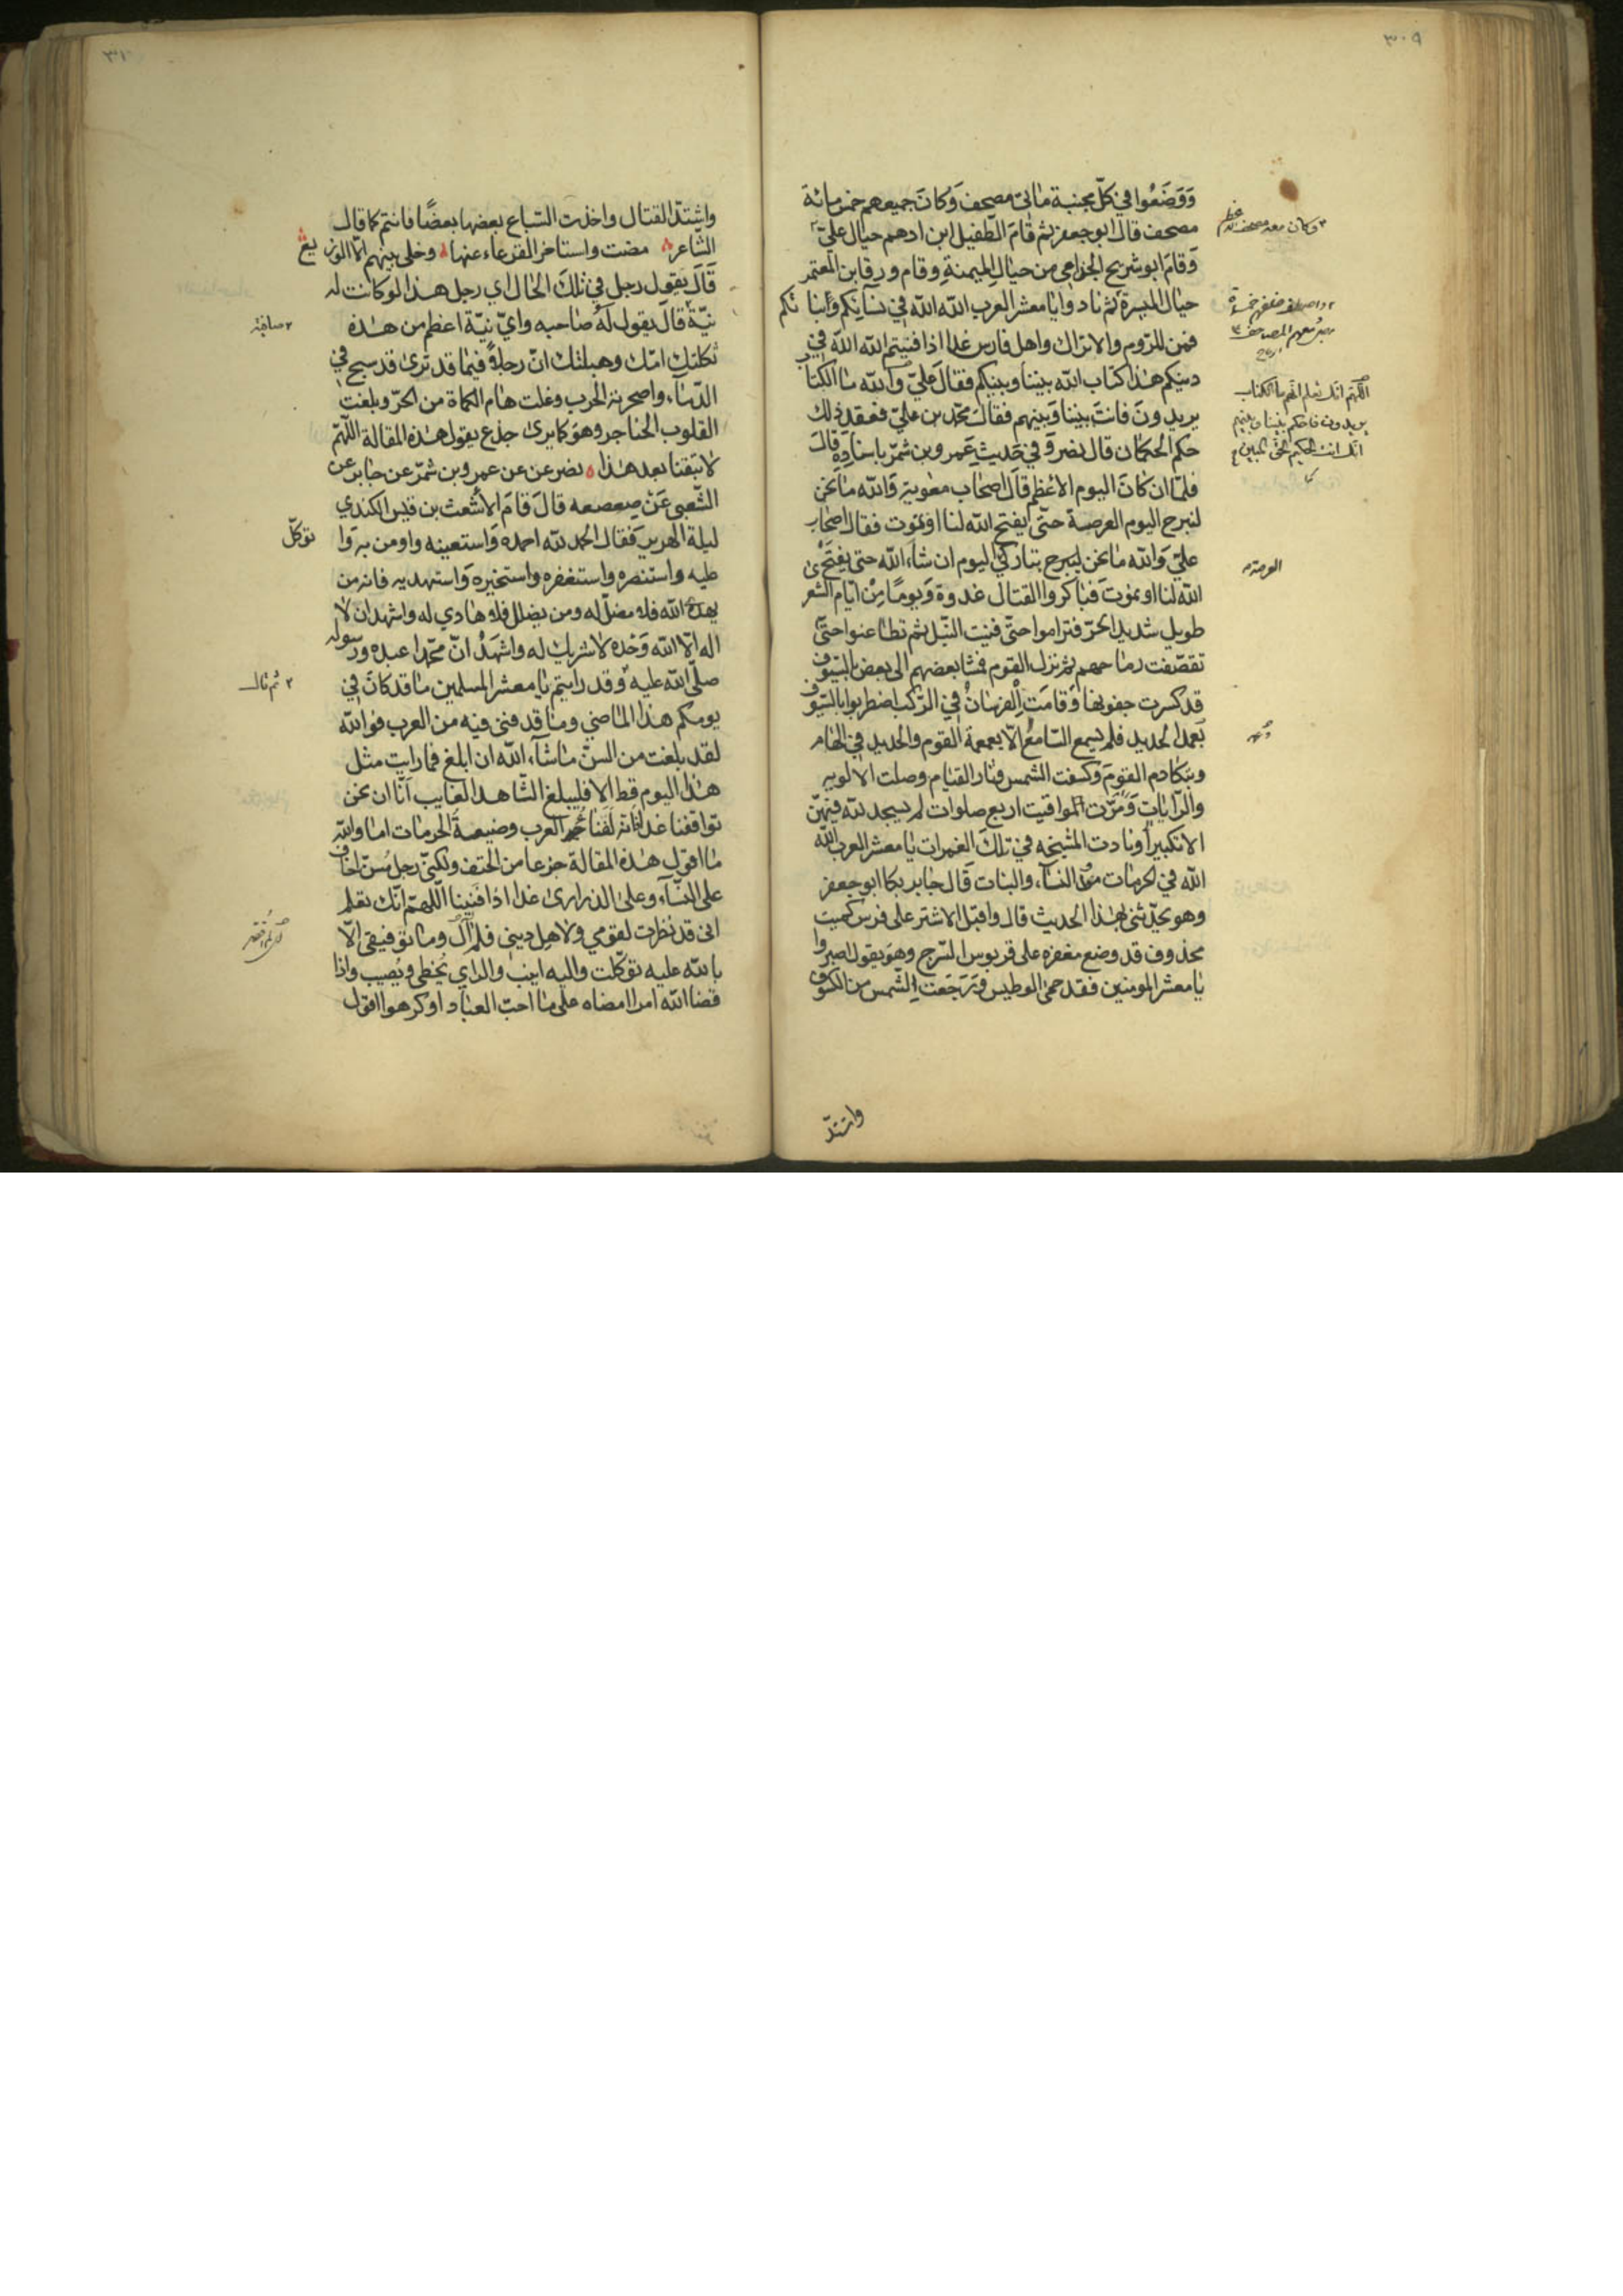 ٣٠٩
ووضعوا في كلّ مجنبة مائتى مصحف وكان جميعهم خمس مائة
مصحف قال ابو جعفر ثم قام الطّفيل ابن ادهم حيال عليّ
وقام ابو شريح الجزامي من حيال الميمنة وقام ورقا بن المعتمر
حيال الميسرة ثم نادوا يا معشر العرب الله الله في نسآيكم وأبنا تكم
فمن للرّوم والاتراك واهل فارس غدا اذا فنيتم الله الله في
دينكم هذا كتاب الله بيننا وبينكم فقال عليّ والله ما الكتاب
يريدون فانت بيننا وبينهم فقال محمّد بن عليّ فعقد ذلك
حكم الحكمان قال نضر وفي حديث عمرو بن شمّر باسناده قال
فلمّا ان كان اليوم الاعظم قال اصحاب معوية والله ما نحن
لنبرح اليوم العرصة حتّى يفتح الله لنا او نموت فقال اصحاب
عليّ والله ما نحن لنبرح بتاركي اليوم ان شاء الله حتى يفتح
الله لنا او نموت فباكروا القتال غدوة ويومًا من ايّام الشعر
طويل شديد الحرّ فتراموا حتّى فنيت النّبل ثم تطاعنوا حتّى
تقصّفت رماحهم ثم نزل القوم فمشا بعضهم الى بعض بالسّيوف
قد كسرت جفونها وقامت الفرسان في الرّكب اضطربوا بالسّيوف
بعمد الحديد فلم يسمع السّامع الّا بعمعمة القوم والحديد في الهام
وتكادم القوم وكسفت الشمس وثار القتام وصلت الالويه
والرّايات ومرّت المواقيت اربع صلوات لم يسجد لله فيهنّ
الا تكبيرا ونادت المشيخه في تلك الغمرات يا معشر العرب الله
الله في الحرمات من النسآء والبنات قال جابر بكا ابو جعفر
وهو يحدّثنى بهذا الحديث قال واقبل الاشتر على فرس كميت
محذوف قد وضع مغفره على قربوس السّرج وهو يقول اصبروا
يا معشر المومنين فقد حمى الوطيس وترجعت الشّمس من الكسوف
وكان معه مصحف
اللّهم انك تعلم انهم ما الكتاب
يريدون فاحكم بيننا وبينهم
انك انت الحكيم الحق المبين
العرصة
واشتدّ
٣١٠
واشتدّ القتال واخذت السّباع بعضها بعضًا فانتم كما قال
الشاعر مضت واستاخر القرعاء عنها وخلى بينهم الّا الوزيع
قال يقول رجل في تلك الحال اي رجل هذا لو كانت له
نيّة قال يقول له صاحبه وايّ نيّة اعظم من هذه
ثكلتك امّك وهبلتك انّ رجلاً فيما قد ترى قد سبح في
الدّمآء واصحرته الحرب وغلت هام الكماة من الحرّ وبلغت
القلوب الحناجر وهو كما يرى جذع يقول هذه المقالة اللّهمّ
لا تبقنا بعد هذا نضر عن عن عمرو بن شمّر عن جابر عن
الشّعبى عن صعصعه قال قام الأشعث بن قيس الكندي
ليلة الهرير فقال الحمد لله احمده واستعينه واومن به وا
توكّل
عليه واستنصره واستغفره واستخيره واستهديه فانه من
يهدى الله فلا مضلّ له ومن يضلل فلا هادي له واشهد ان لا
اله الّا الله وحده لا شريك له واشهد انّ محمّدا عبده ورسوله
صلّى الله عليه وقد رايتم يا معشر المسلمين ما قد كان في
ثم قال
يومكم هذا الماضي وما قد فنى فيه من العرب فو الله
لقد بلغت من السنّ ما شآء الله ان ابلغ فما رايت مثل
هذا اليوم قط الا فليبلغ الشاهد الغايب أنّا ان نحن
تواقفنا غدا العرب وضيعة الحرمات اما والله
ما اقول هذه المقالة جزعا من الحتف ولكنى رجل مسنّ اخاف
على النسآء وعلى الذرارى غدا اذا فنينا اللّهمّ انّك تعلم
انى قد نظرت لقومي ولاهل دينى فلم آل وما توفيقى الّا
بالله عليه توكّلت واليه انيب والراي يخطى ويصيب واذا
قضا الله امرا امضاه على ما احبّ العباد او كرهوا اقول